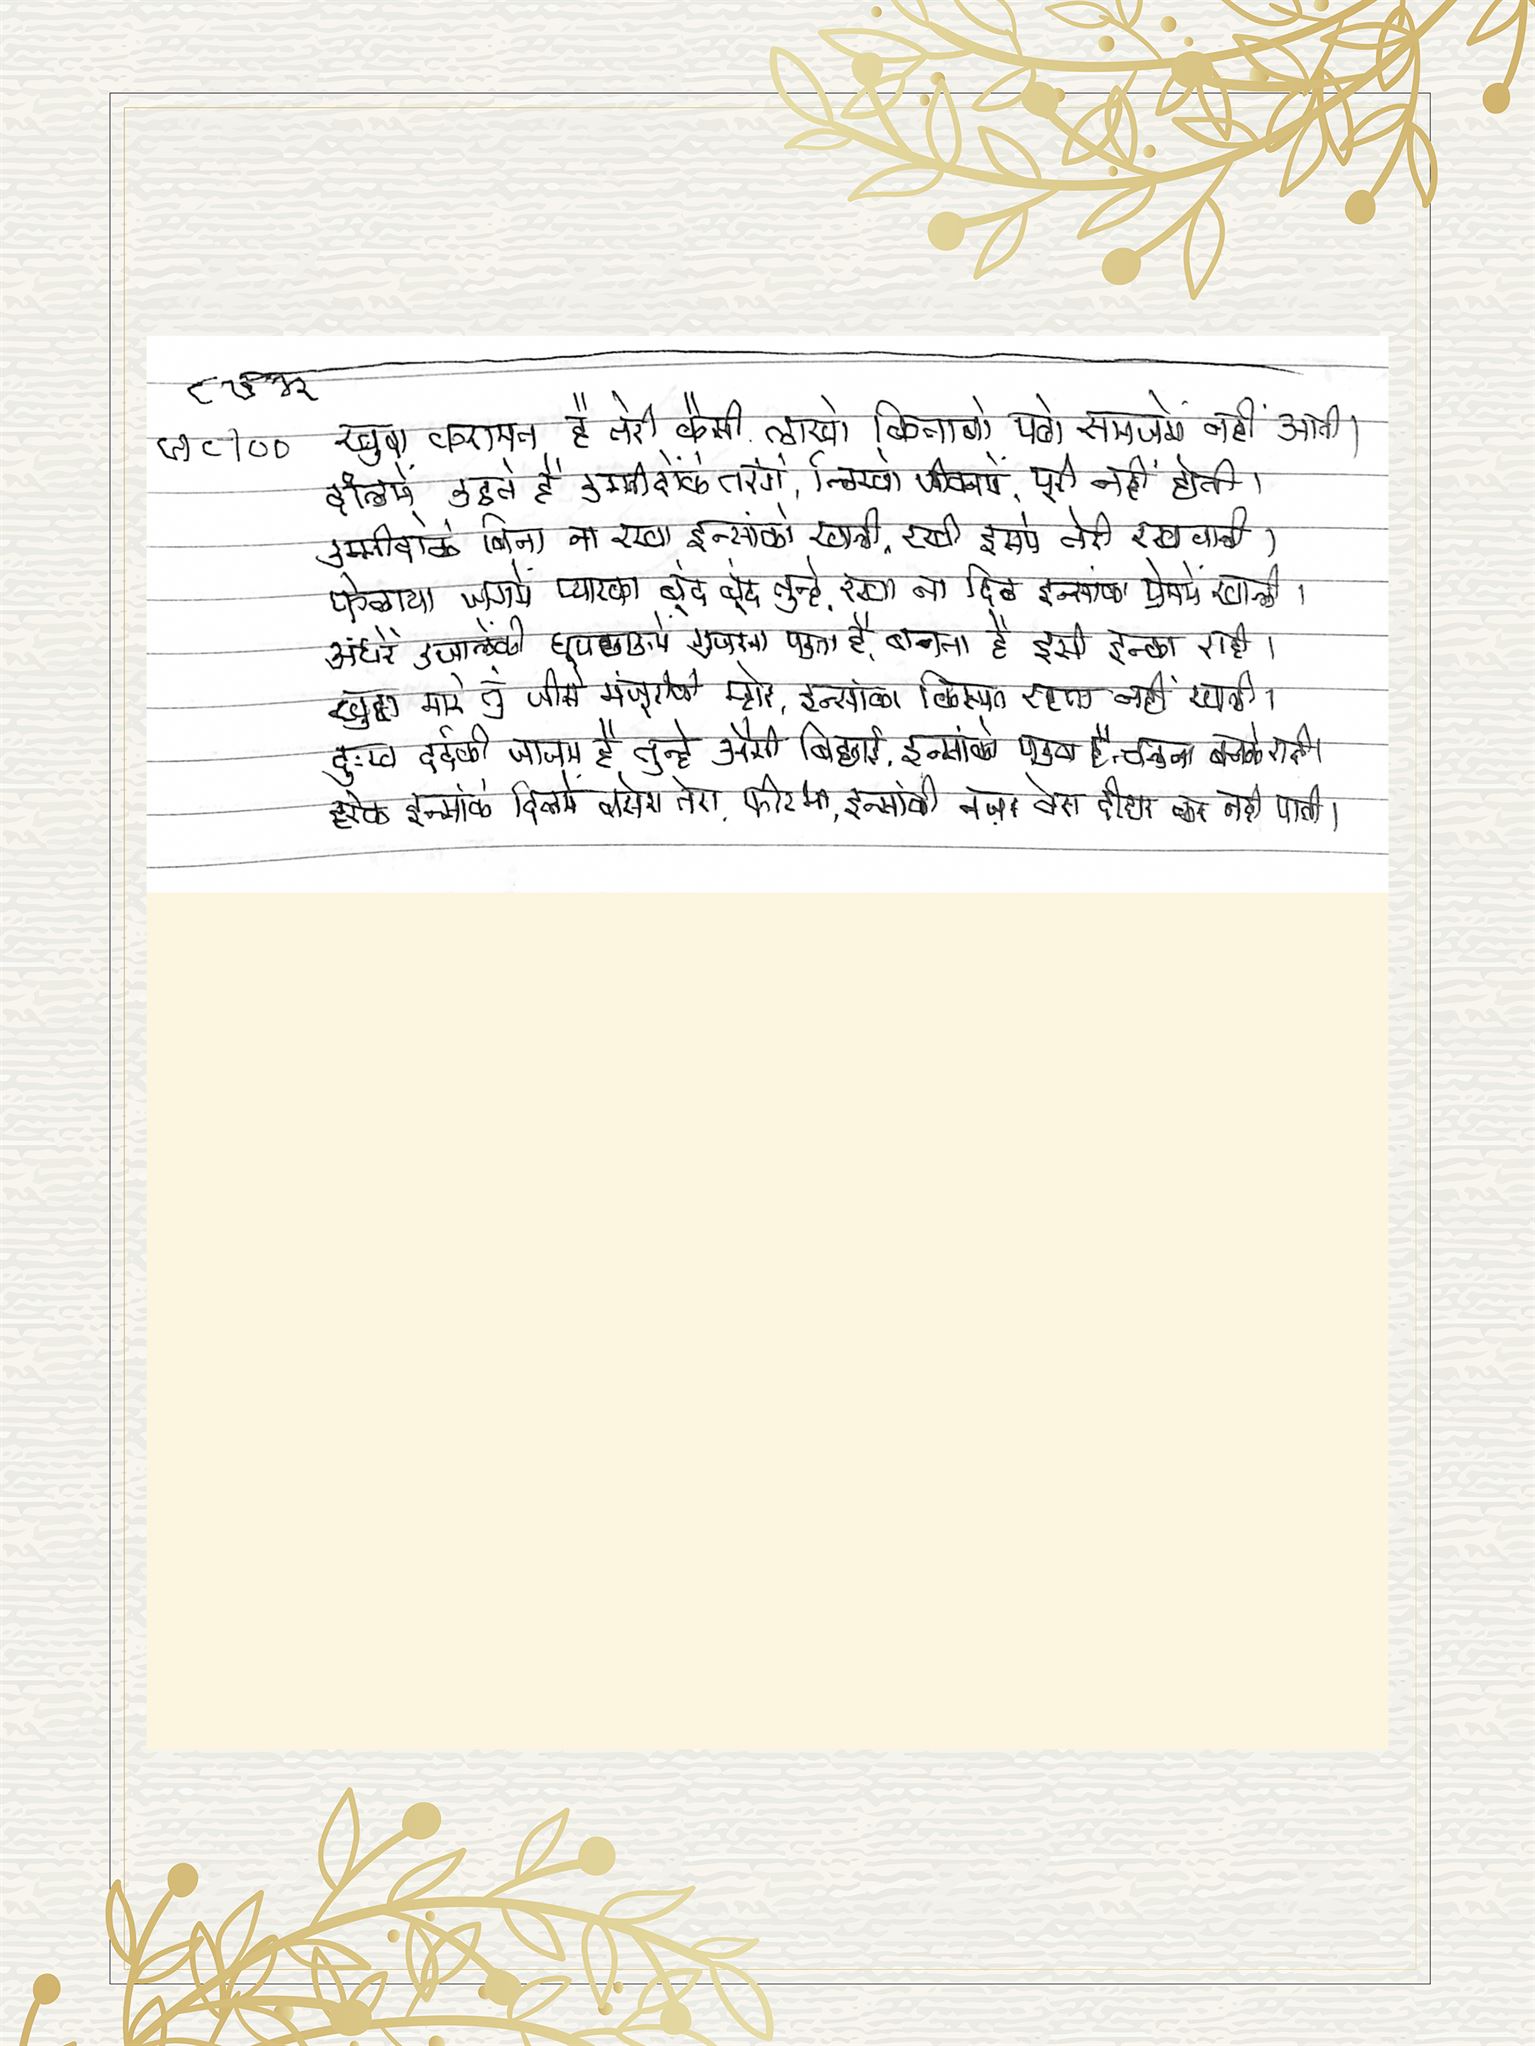 खुदा करामत है तेरी कैसी, लाखो किताबो पढो समजमें नहीं आती।
दीलमें उठते है उम्मीदोंके तरंगो, लिखो जीवनमें, पूरी नहीं होती।
उम्मीदोके बिना ना रखा इन्सांको खाली, रखी इसमे तेरी रखवाली।
फेलाया जगमें प्यारका बूंद बूंद तुन्हे, रखा ना दिल इन्सांका प्रेममें खाली।
अंधेरे उजालेकी धूपछाऊमें गुजरना पडता है, बनना है इसी इन्का राही।
खुदा मारे तुं जीसे मंजूरीकी म्होर, इन्सांका किस्मत रहता नहीं खाली।
दुःख दर्दकी जाजम है तुन्हे ऐसी बिछाई, इन्सांको पडता है चलना बनके राही।
हरेक इन्सांके दिलमें बसेरा तेरा, फीरभी, इन्सांकी नज़र तेरा दीदार कर नहीं पाती।